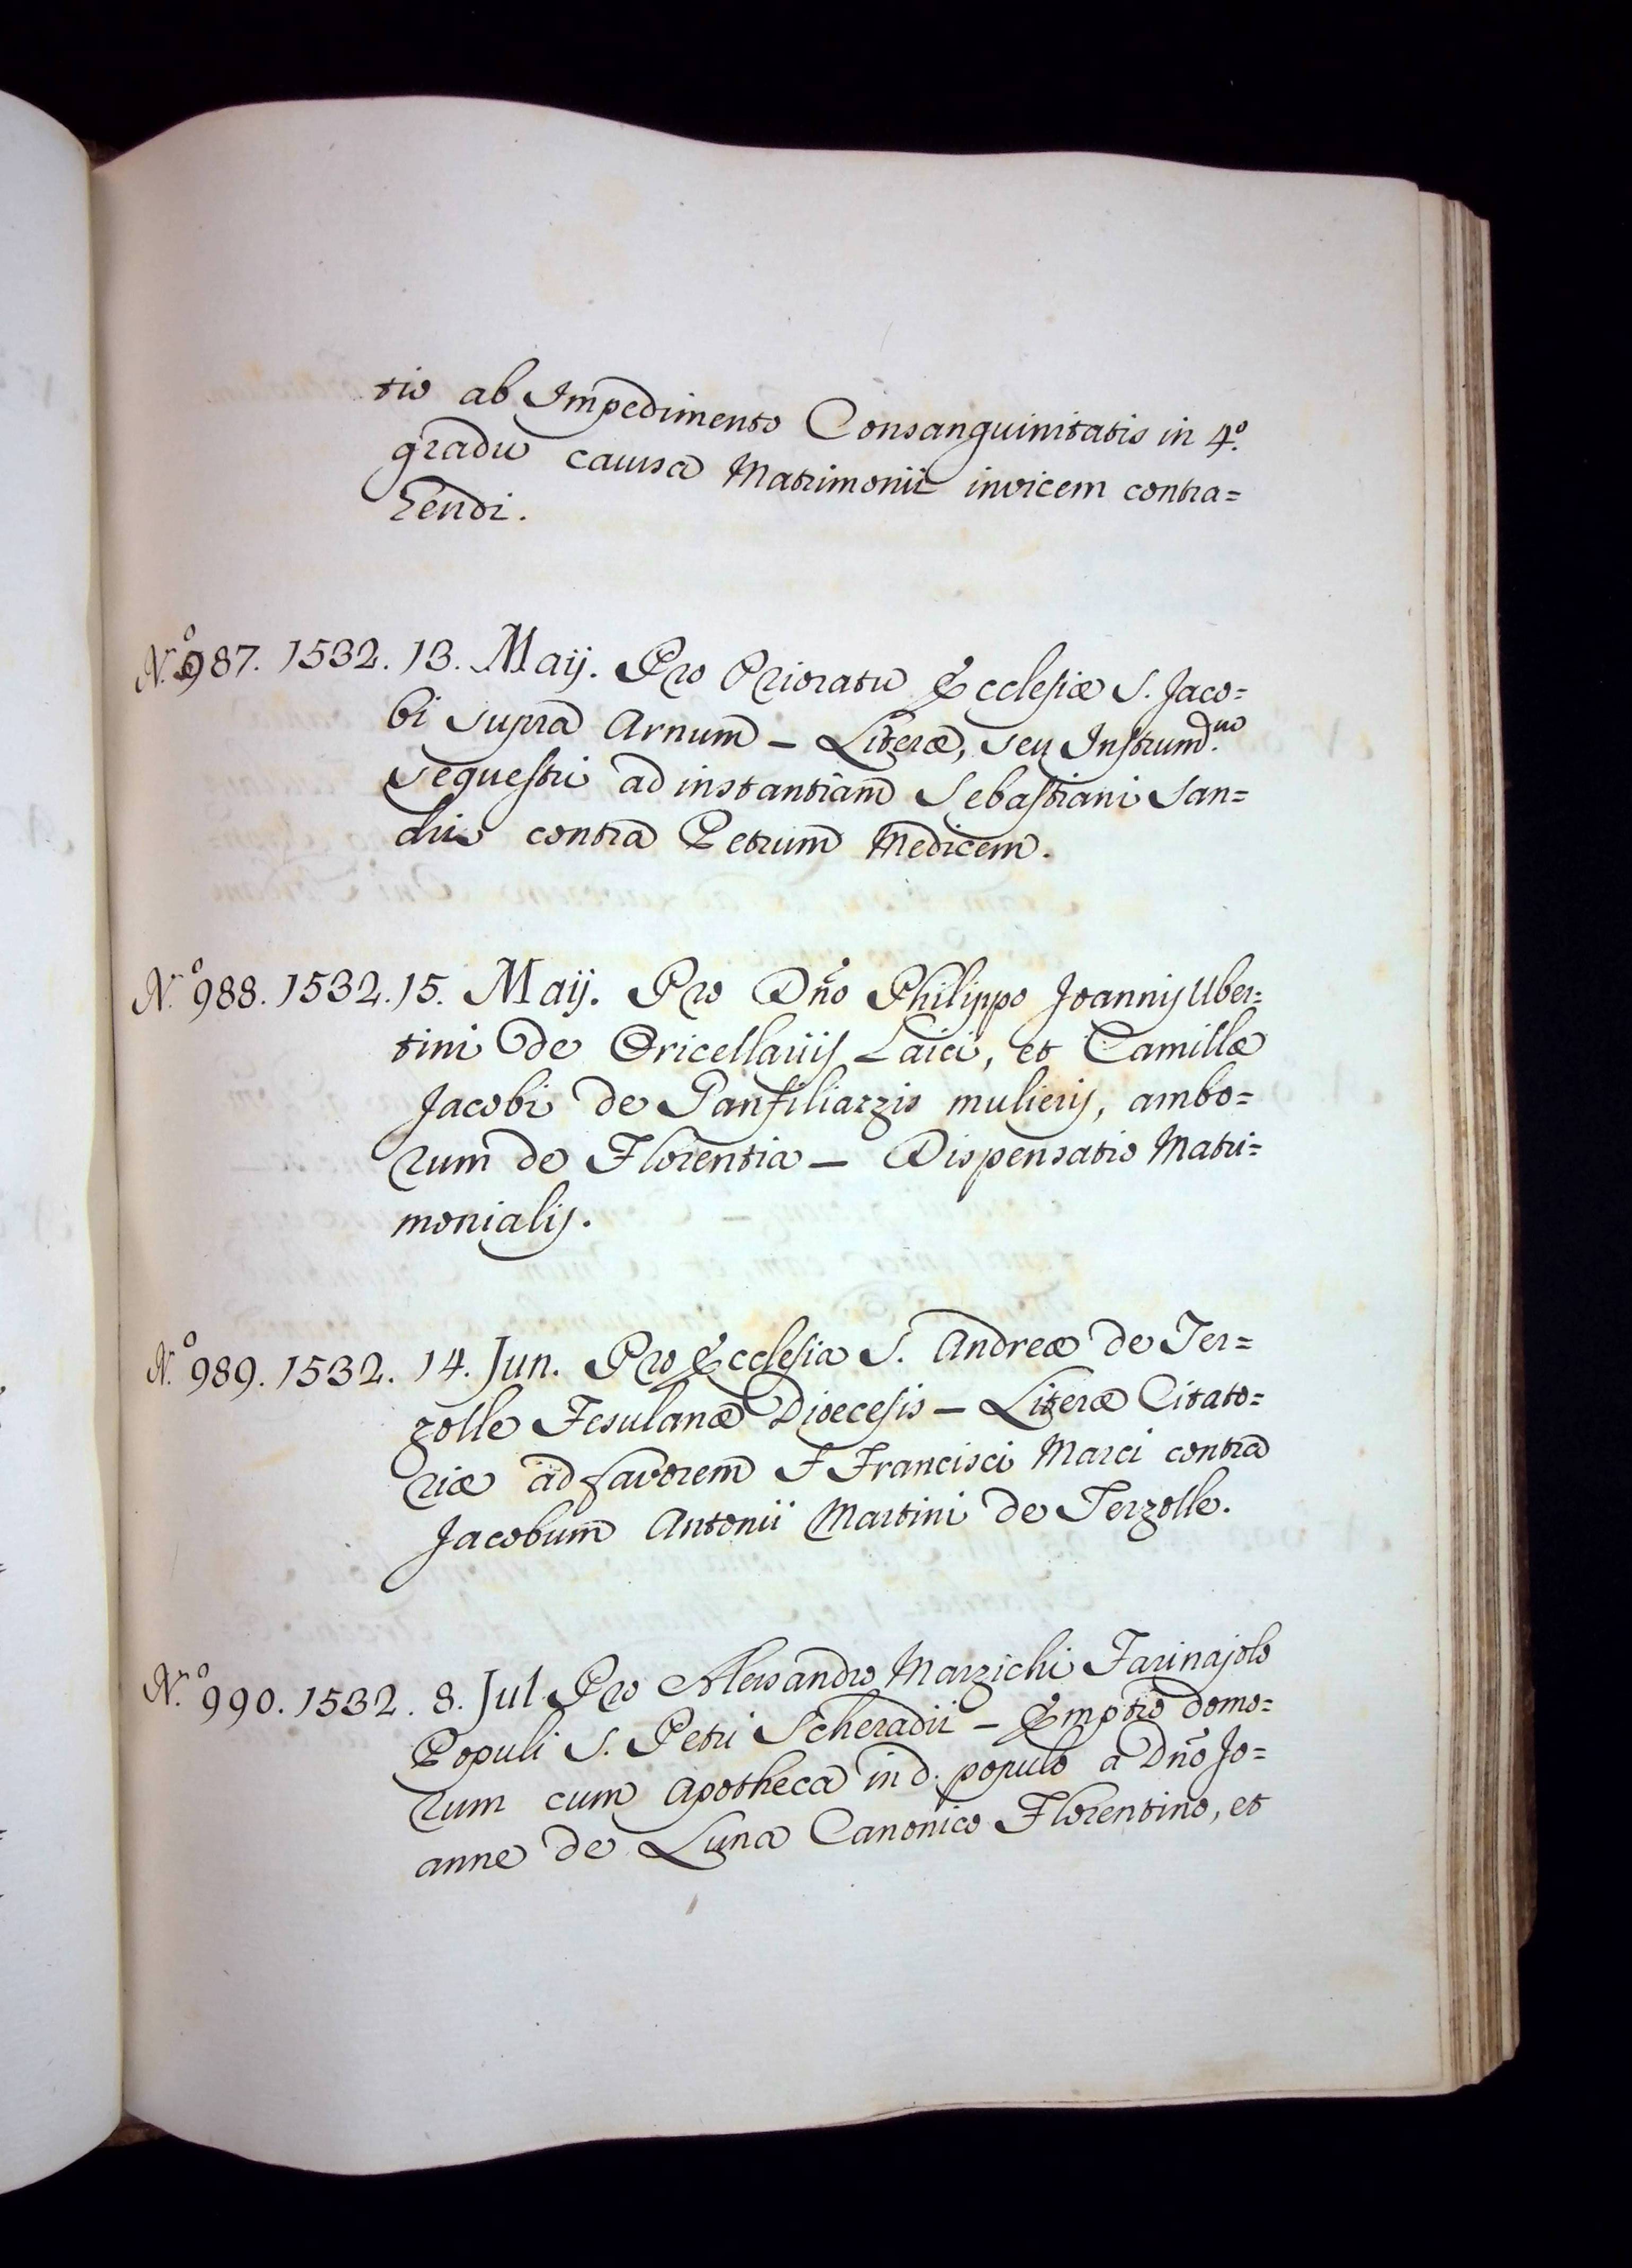 tio ab Impedimento Consanguinitatis in 4.º
gradu causa Matrimonii invicem contra=
hendi.
N.º 987. 1532. 13. Maij. Pro Prioratu Ecclesiæ S. Jaco=
bi supra Arnum – Literæ, seu Instrum.
Sequestri ad instantiam Sebastiani San=
contra Petrum Medicem.
N.º 988. 1532. 15. Maij. Pro Dño Philippo Joannis Uber=
tini de Oricellariis Laici, et Camillæ
Jacobi de Panfiliazzis mulieris, ambo=
rum de Florentia – Dispensatio Matri=
monialis.
N.º 989. 1532. 14. Jun. Pro Ecclesia S. Andreæ de Ter=
zolle Fesulanæ Dioecesis – Literæ Citato=
riæ ad favorem F Francisci Marci contra
Jacobum Antonii Martini de Terzolle.
N.º 990. 1532. 8. Jul. Pro Alersandro Marzichi Farinajolo
Populi S. Petri Scheradii – Emptio domo=
rum cum Apotheca in d. populo a Dño Jo=
anne de Luna Canonico Florentino, et